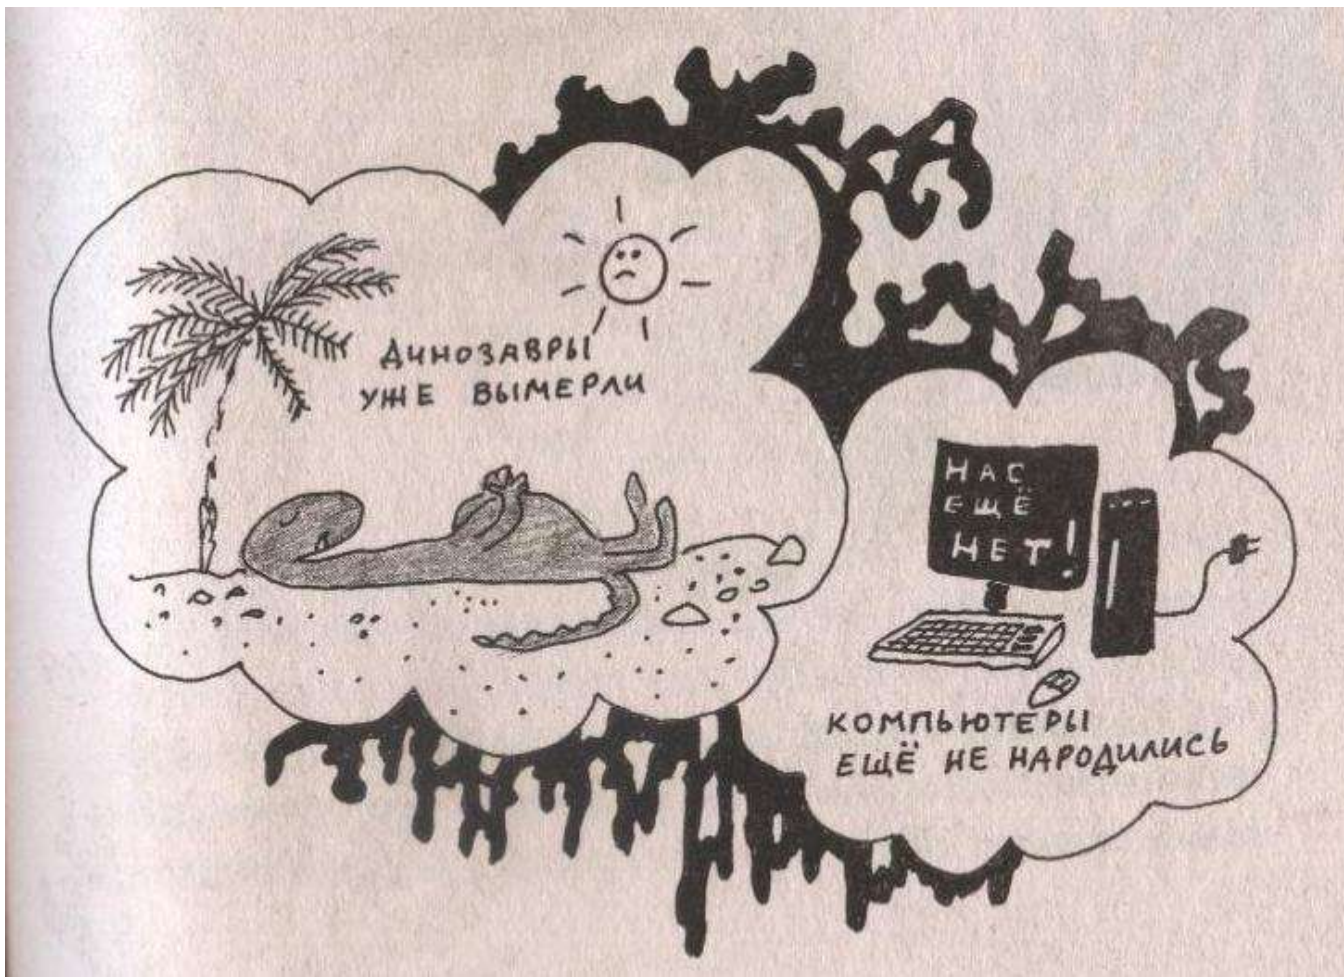 ДИНОЗАВРЫ
УЖЕ ВЫМЕРЛИ
НАС
ЕЩЁ
НЕТ!
КОМПЬЮТЕРЫ
ЕЩЁ НЕ НАРОДИЛИСЬ